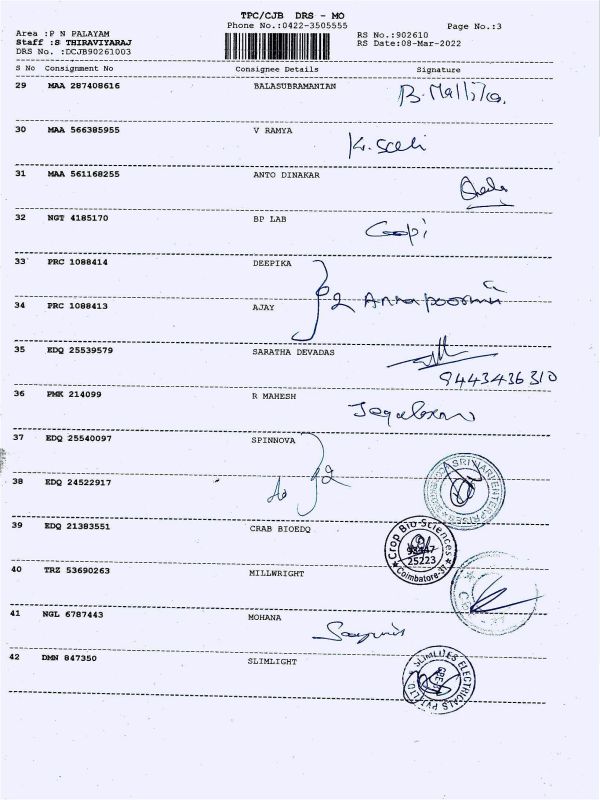 TPC/CJB DRS - MO
Phone No.:0422-3505555 Page No.:3
Area :P N PALAYAM RS No.:902610
Staff :S THIRAVIYARAJ RS Date:08-Mar-2022
DRS No. :DCJB90261003
S No Consignment No Consignee Details Signature
29 MAA 287408616 BALASUBRAMANIAN B. Mallika.
30 MAA 566385955 V RAMYA
31 MAA 561168255 ANTO DINAKAR
32 NGT 4185170 BP LAB Gopi
33 PRC 1088414 DEEPIKA
2 Annapoorni
34 PRC 1088413 AJAY
35 EDQ 25539579 SARATHA DEVADAS
9443436310
36 PMK 214099 R MAHESH
37 EDQ 25540097 SPINNOVA
2
38 EDQ 24522917 do
39 EDQ 21383551 CRAB BIOEDQ Crop Bio Sciences
25223
Coimbatore-37
40 TRZ 53690263 MILLWRIGHT
41 NGL 6787443 MOHANA
42 DMN 847350 SLIMLIGHT SLIMLITES ELECTRICALS PVT LTD.